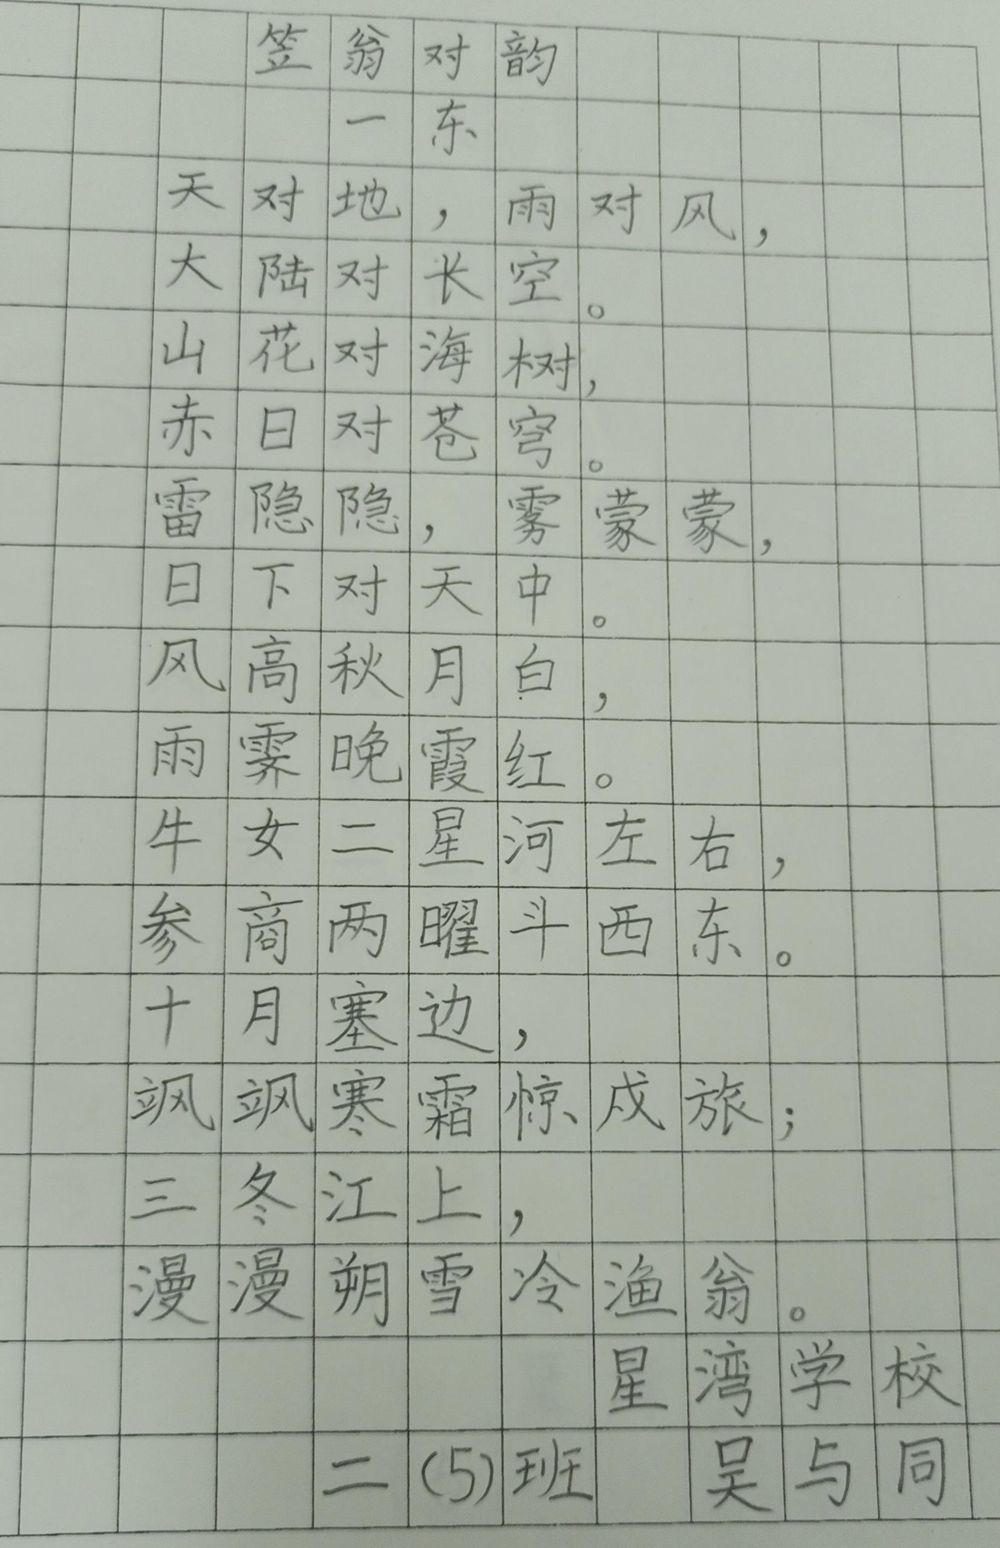 笠翁对韵
一东
天对地，雨对风，
大陆对长空。
山花对海树，
赤日对苍穹。
雷隐隐，雾蒙蒙，
日下对天中。
风高秋月白，
雨霁晚霞红。
牛女二星河左右，
参商两曜斗西东。
十月塞边，
飒飒寒霜惊戍旅；
三冬江上，
漫漫朔雪冷渔翁。
星湾学校
二(5)班 吴与同